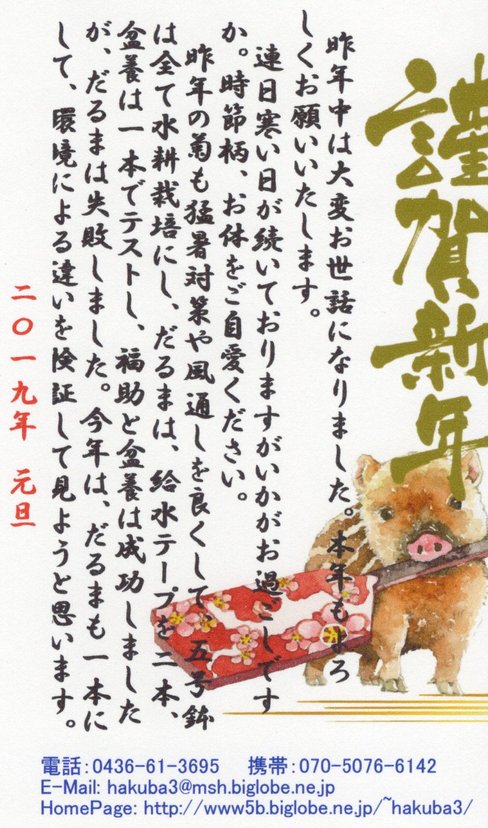 謹賀新年
昨年中は大変お世話になりました。本年もよろ
しくお願いいたします。
連日寒い日が続いておりますがいかがお過ごしです
か。時節柄、お体をご自愛ください。
昨年の菊も猛暑対策や風通しを良くして、五号鉢
は全て水耕栽培にし、だるまは、給水テープを二本、
盆養は一本でテストし、福助と盆養は成功しました
が、だるまは失敗しました。今年は、だるまも一本に
して、環境による違いを検証して見ようと思います。
二〇一九年 元旦
電話：0436-61-3695 携帯：070-5076-6142
E-Mail: hakuba3@msh.biglobe.ne.jp
HomePage: http://www5b.biglobe.ne.jp/~hakuba3/